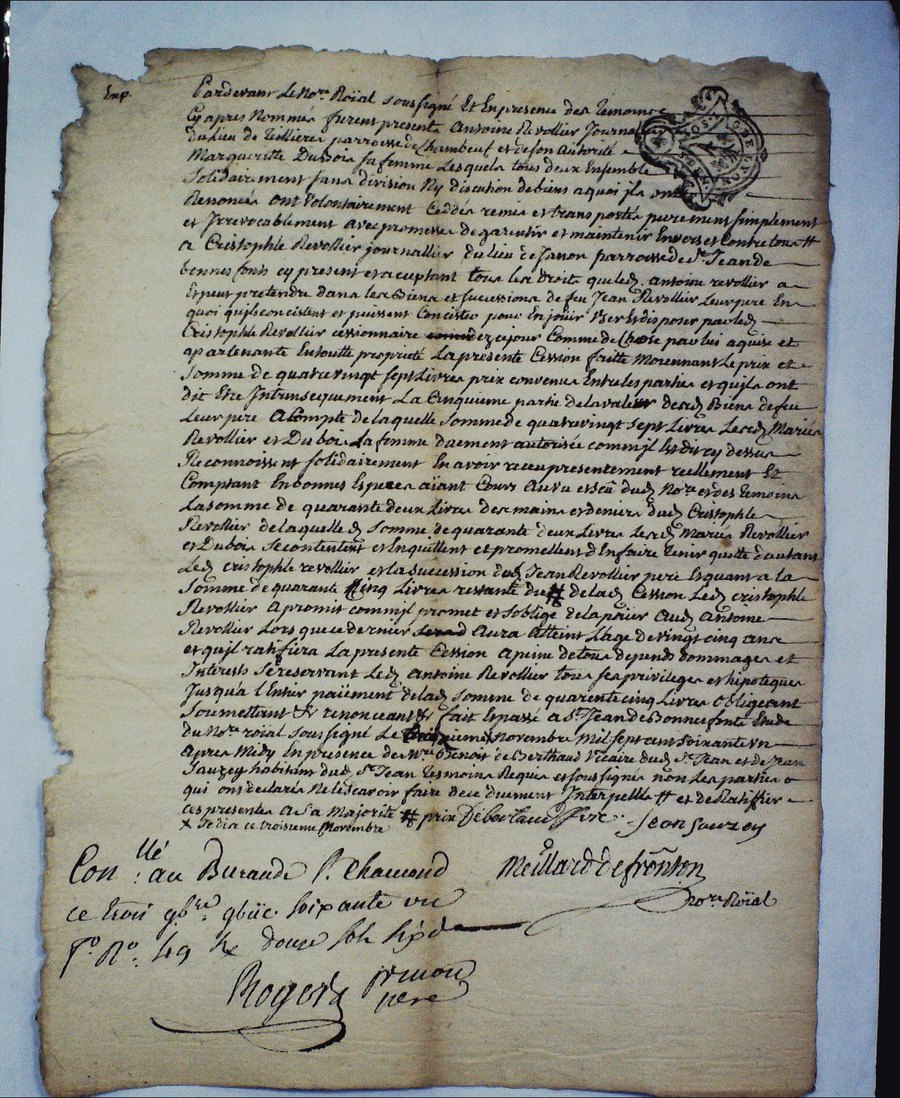 Exp.
Pardevant Le No.re Roïal soussigné Et En presence des Temoins
Cy apres Nommés furent presents Antoine Revollier Journa
du Lieu de Tillieres parroisse de Chambeuf et de son Autorité
Margueritte DuBois sa femme Lesquels tous deux Ensemble
Solidairement sans division Ny discution de biens a quoi ils ont
Renoncés ont Volontairement Ceddés remis et transportés purement simplement
et Irrevocablement avec promesse de garentir et maintenir Envers et Contre tous #
a Cristophle Revollier journallier du Lieu de Janon parroisse de St Jean de
bonnes fonts cy present et acceptant tous les Droits que led. antoine revollier a
et peut pretendre dans les Biens et successions de feu Jean Revollier Leur pere En
quoi qu'ils concistent et puissent Concister pour En jouir User Et disposer par led.
Cristophle Revollier cessionnaire dez ce jour Comme de Chose par lui aquise et
apartenante En toutte proprieté La presente Cession faitte Moiennant Le prix et
Somme de quatre vingt sept Livres prix convenu Entre les parties et qu'ils ont
dit Etre Intrinsequement La Cinquieme partie de la valeur desd. Biens de feu
Leur pere A Compte de laquelle Somme de quatre vingt sept Livres Lesd. Mariés
Revollier et Dubois La femme duement autorisée comm'jl Est dit cy dessus
Reconnoissent solidairement En avoir receu presentement reellement Et
Comptant En bonnes Especes aïant Cours Au vu et sçû dud. No.re et des temoins
La somme de quarante deux Livres des mains et deniers dud. Cristophle
Revollier de laquelle d. Somme de quarante deux Livres Lesd. Mariés Revollier
et Dubois Se contentent et En quittent et promettent d'En faire tenir quitte d'autant
Led. cristophle revollier et la succession dud. Jean Revollier pere Et quant a la
Somme de quarante Cinq Livres restante du # de lad. Cession Led. cristophle
Revollier a promis comm'jl promet et s'oblige de la païer Aud. Antoine
Revollier Lors que ce dernier Aura Atteint L'age de vingt cinq ans
et qu'jl ratifiera La presente Cession a peine de tous depends dommages et
Interests Se reservant Led. Antoine Revollier tous ses privileges et hipoteques
Jusqu'a l'Entier paiement de lad. Somme de quarente cinq Livres obligeant
Soumettant & renonceant & fait Et passé a St Jean de Bonnefonts Etude
du No.re roïal soussigné Le x novembre Mil sept cent soixante un
Apres Midy En presence de M.re Benoit de Berthaud Vicaire dud. St Jean et de Jean
Sauzey habitant dud. St Jean Tesmoins Requis et soussignés non Les parties
qui ont declaré Ne Le sçavoir faire de ce duement Interpellés # et de Ratiffier
ces presentes a Sa Majorité # prix De Bertaud ffire Jean Sauzey
x Je dis ce troisieme Novembre
Con.llé au Bureau de St. Chamond
ce trois 9bre soixante un
f.o R.o 49 Rx douze sols six d
Meillard de frönton
No.re Roïal